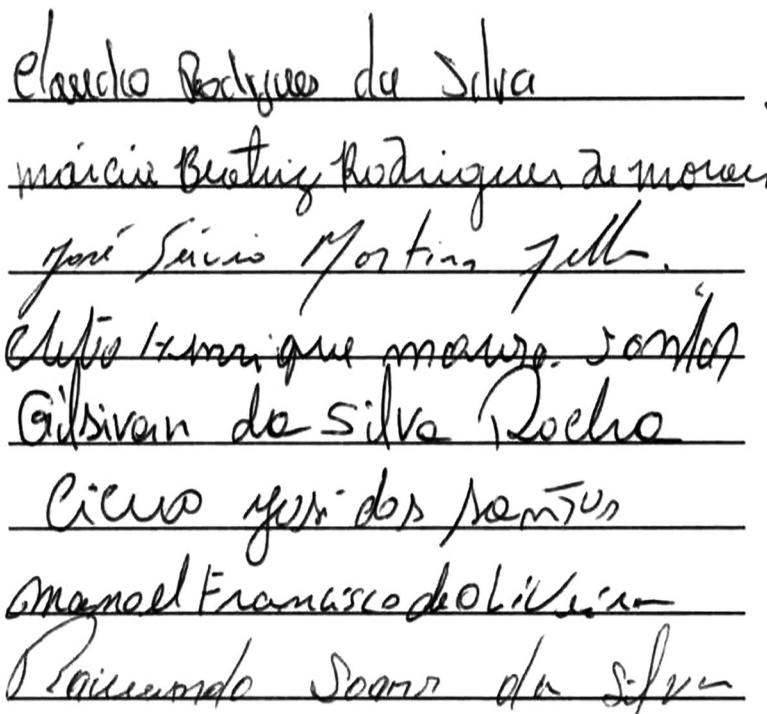 Claudio Rodrigues da Silva
Márcia Beatriz Rodrigues de Moraes
José Sércio Martins
Henrique santos
Gilsivan da Silva Rocha
Cicero José dos Santos
Manoel Francisco de Oliveira
Raimundo Soares da Silva